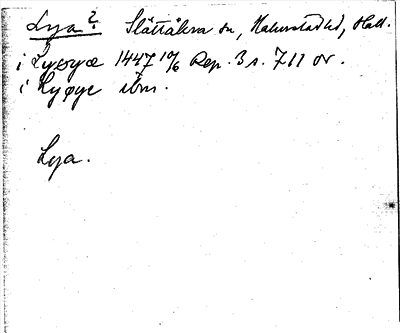 Lya? Slättåkra sn, Halmstads hd, Hall.
i Lyøyæ 1447 10/6 Rep. 3 s. 711 or.
i Lyøye ibm.
Lya.